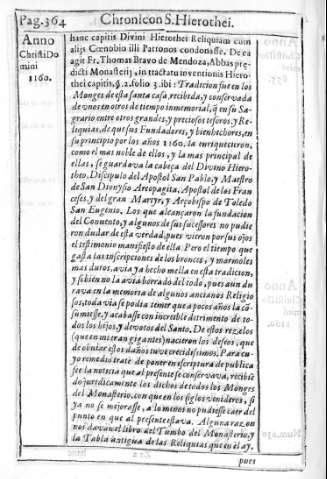 Pag.364 Chronicon S. Hierothei.
Anno
Christi Do
mini
1160.
hanc capitis Divini Hierothei Reliquiam cum
alijs Cœnobio illi Patronos condonasse. De ea
agit Fr, Thomas Bravo de Mendoza, Abbas præ-
dicti Monasterij, in tractatu inventionis Hiero-
thei capitis, §. 2. folio 3. ibi: Tradicion fue en los
Monges de esta santa casa, recibida, y conservada
de unos en otros de tiempo inmemorial, q̃ en su Sa-
grario entre otros grandes, y preciosos tesoros, y Re-
liquias, de que sus Fundadores, y bienhechores, en
su principio por los años 1160. la enriquecieron,
como el mas noble de ellos, y la mas principal de
ellas, se guardava la cabeça del Divino Hiero-
theo, Discipulo del Apostol San Pablo, y Maestro
de San Dionysio Areopagita, Apostol de las Fran
ceses, y del gran Martyr, y Arçobispo de Toledo
San Eugenio. Los que alcançaron la fundacion
del Convento, y algunos de sus sucessores no pudie
ron dudar de esta verdad, pues vieron por sus ojos
el testimonio manifiesto de ella. Pero el tiempo que
gasta las inscripciones de los bronces, y marmoles
mas duros, avia ya hecho mella en esta tradicion,
y si bien no la avia borrado del todo, pues aun du
rava en la memoria de algunos ancianos Religio
sos, toda via se podia temer que a pocos años la cõ
sumiesse, y acabasse con increible ditrimento de to-
dos los hijos, y devotos del Santo. De estos rezelos
(que en mi eran gigantes) nacieron los deseos, que
de obviar estos daños tuve crecidissimos. Para cu-
yo remedio traté de poner en escritura publica
fee la noticia que al presente se conservava, recibiẽ
do juridicamente los dichos de todos los Monges
del Monasterio, con que en los siglos venideros, si
ya no se mejorasse, a lo menos no pudiesse caer del
punto en que al presente estava. Alguna razon
nos davan el libro del Tumbo del Monasterio, y
la Tabla antigua de las Reliquias que en èl ay.
pues